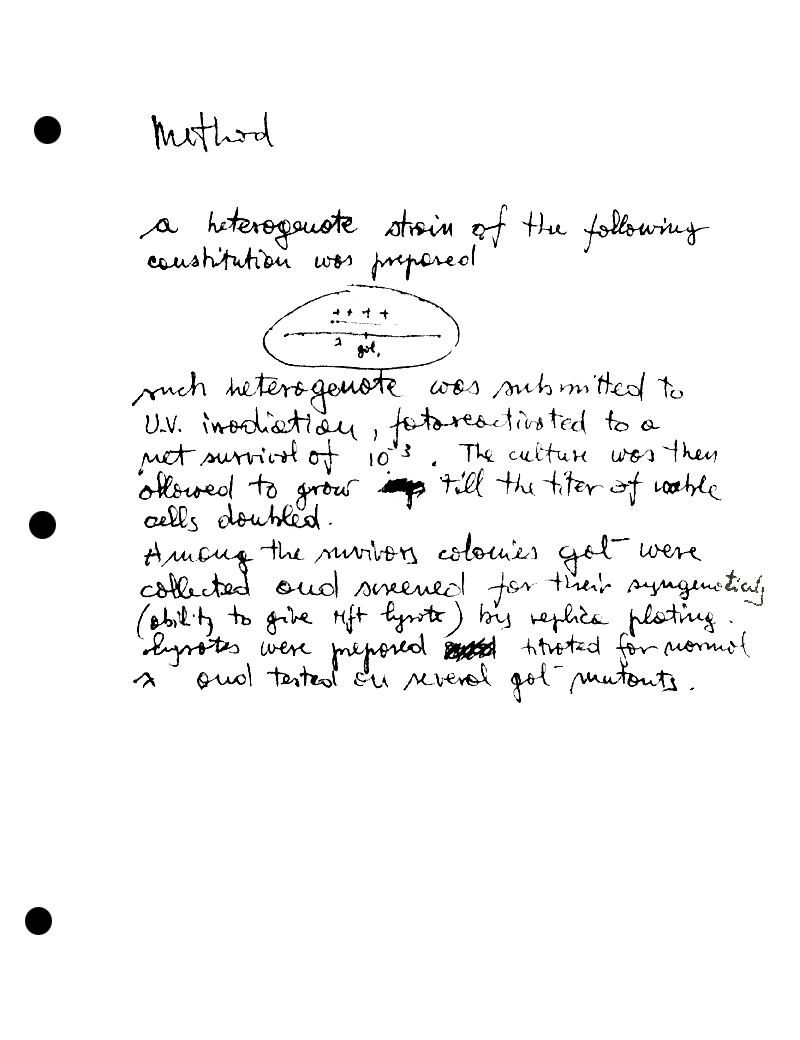 Method
a heterogenote strain of the following
constitution was prepared
+ + + +
λ gal.
such heterogenote was submitted to
U.V. irradiation, fotoreactivated to a
net survival of 10⁻³. The culture was then
allowed to grow till the titer of viable
cells doubled.
Among the survivors colonies gal⁻ were
collected and screened for their syngenoticity
(ability to give Hft lysate) by replica plating.
Lysates were prepared titrated for normal
λ and tested on several gal⁻ mutants.